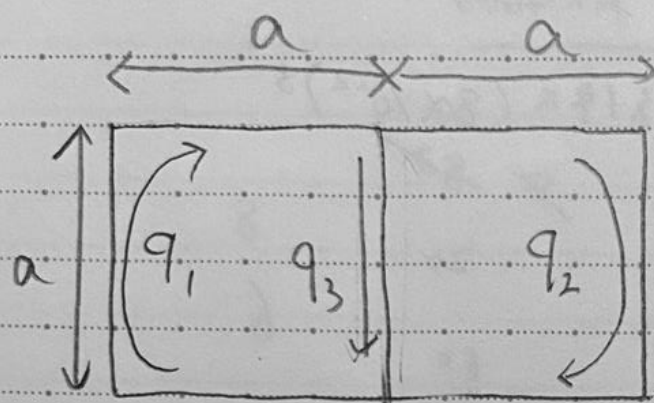 a a
a q₁ q₃ q₂